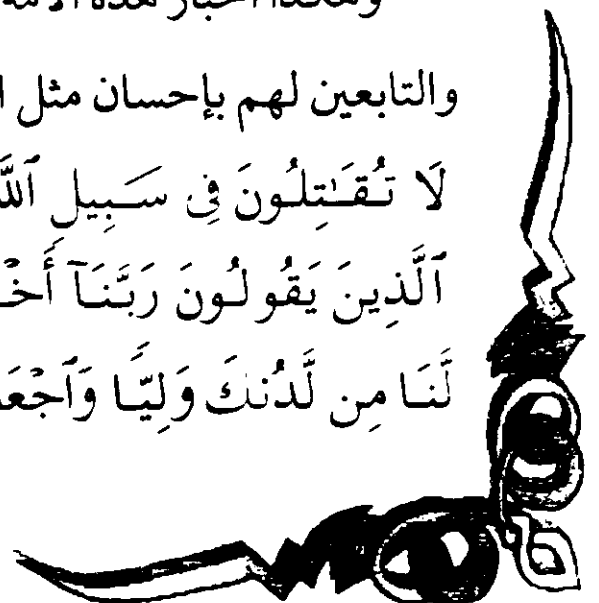 وهكذا أخبار هذه
والتابعين لهم بإحسان مثل
لَا تُقَـٰتِلُونَ فِى سَبِيلِ ٱللَّ
ٱلَّذِينَ يَقُولُونَ رَبَّنَآ أَخْـ
لَّنَا مِن لَّدُنكَ وَلِيًّا وَٱجْعَـ